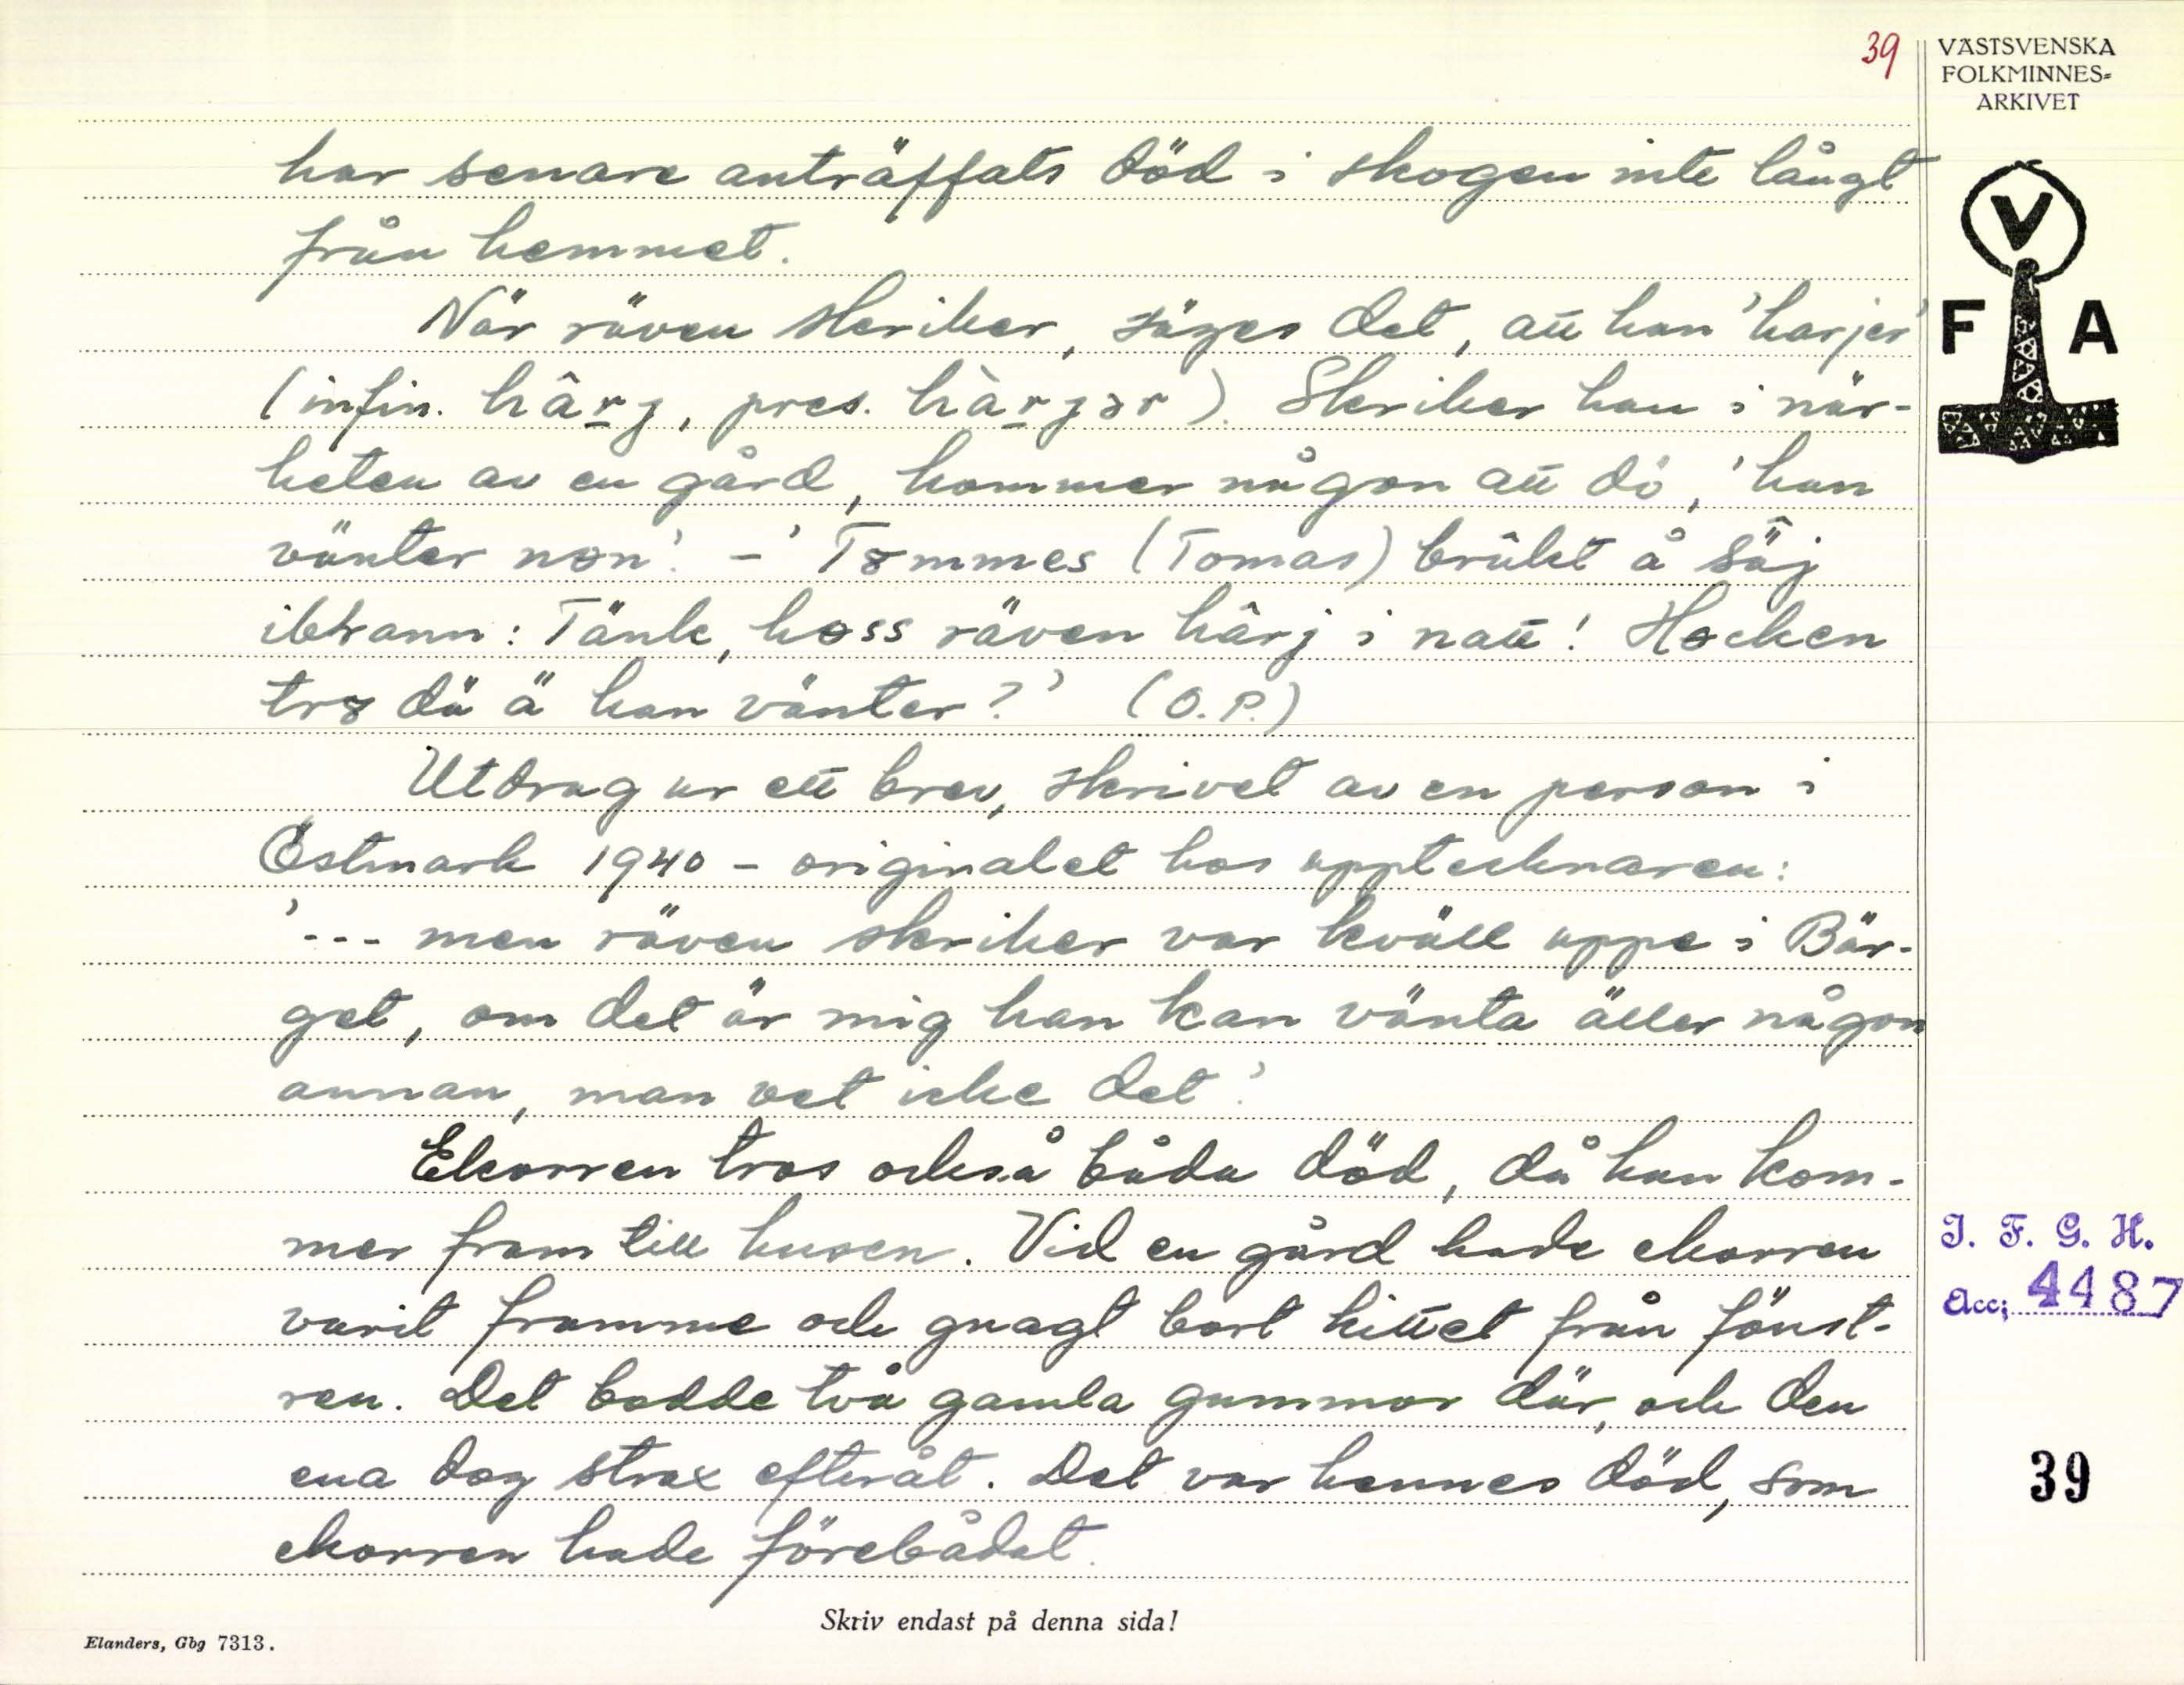 39
VÄSTSVENSKA
FOLKMINNES-
ARKIVET
V
F A
har senare anträffats död i skogen inte långt
från hemmet.
När räven skriker, säges det, att han 'harjer'
(infin. hârj, pres. hàrjər). Skriker han i när-
heten av en gård, kommer någon att dö, 'han
vänter nøn'. - 'Tømmes (Tomas) brûket å säj
ibbann: Tänk, høss räven hârj i natt! Høcken
trø dä ä han vänter?' (O.P.)
Utdrag ur ett brev, skrivet av en person i
Östmark 1940 - originalet hos upptecknaren:
'--- men räven skriker var kväll uppe i Bär-
get, om det är mig han kan vänta äller någon
annan, man vet icke det'.
Ekorren tros också båda död, då han kom-
mer fram till husen. Vid en gård hade ekorren
varit framme och gnagt bort kittet från fönst-
ren. Det bodde två gamla gummor där, och den
ena dog strax efteråt. Det var hennes död, som
ekorren hade förebådat.
I. F. G. H.
Acc; 4487
39
Skriv endast på denna sida!
Elanders, Gbg 7313.